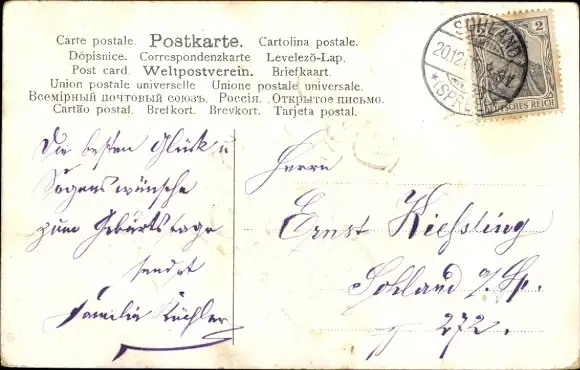 Carte postale. Postkarte. Cartolina postale.
Dopisnice. Correspondenzkarte Levelező-Lap.
Post card. Weltpostverein. Briefkaart.
Union postale universelle Unione postale universale.
Всемірный почтовый союзъ. Россія. Открытое письмо.
Cartão postal. Brefkort. Brevkort. Tarjeta postal.
SOHLAND
20.12.
*(SPREE
2
DEUTSCHES REICH
Die besten Glück u
Segenswünsche
zum Geburtstage
sendet
Familie Küchler
Herrn
Ernst Kießling
Sohland a/Sp.
272.